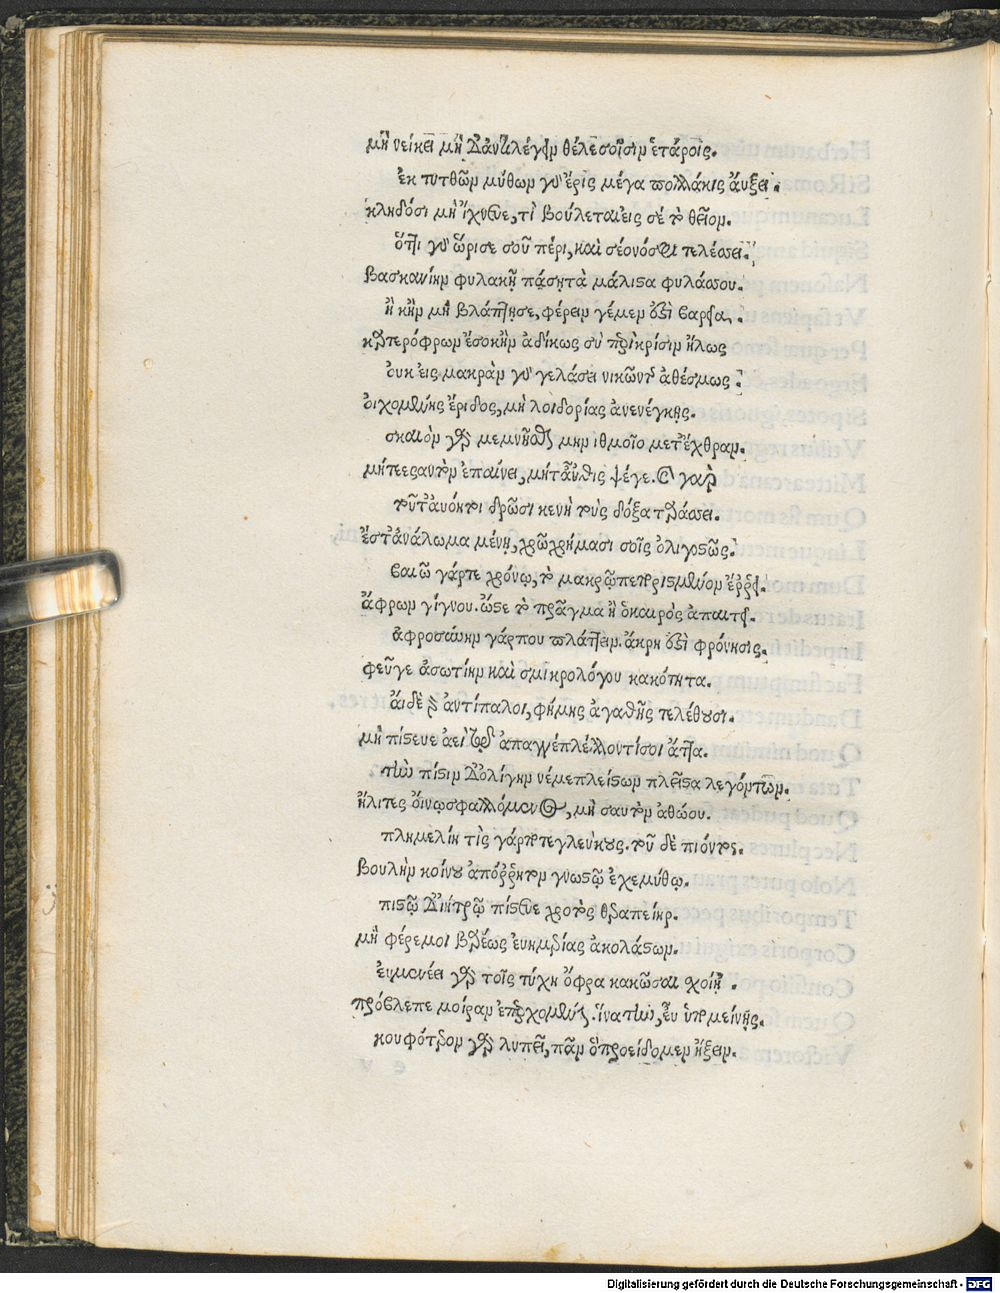 μὴ νείκει μὴ δ᾽ ἀντιλέγειν θέλε σοῖσιν ἑταίροις.
ἐκ τυτθῶν μύθων γ᾽ ἔρις μέγα πολλάκις αὔξει.
κληδόσι μὴ ἴχνευε, τί βούλεται εἰς σέ τὸ θεῖον.
ὅττι γ᾽ ὥρισε σοῦ πέρι, καὶ σέο νόσφι τελέσσει.
βασκανίην φυλακῇ πάσῃ τὰ μάλιστα φυλάσσου.
ἢ κἢν μὴ βλάπτῃ σε, φέρειν γέμεν ἐστὶ
καρτερόφρων ἔσο κἢν ἀδίκως σὺ κρίσιν ἥλως
οὐκ εἰς μακρὰν γ᾽ γελάσει νικῶν τις ἀθέσμως.
οἰχομένης ἔριδος, μὴ λοιδορίας ἀνενέγκῃς.
σκαιὸν γὰρ μεμνῆσθαι μηνιθμοῖο μετ᾽ ἔχθραν.
μήτε ἑαυτὸν ἐπαίνει, μήτ᾽ αὖθις ψέγε. καὶ γὰρ
τοῦτ᾽ ἀνόητοι δρῶσι κενὴ τοὺς δόξα ταράσσει.
ἔστ᾽ ἀνάλωμα μένῃ, χρῶ χρήμασι σοῖς ὀλιγοστῶς.
βαιῷ γάρ τε χρόνῳ, τὸ μακρῷ πεπορισμένον ἔρρει.
ἄφρων γίγνου. ὥστε τὸ πρᾶγμα ἢ ὁ καιρὸς ἀπαιτεῖ.
ἀφροσύνην γάρ που πλάττειν. ἄκρη ἐστὶ φρόνησις.
φεῦγε ἀσωτίην καὶ σμικρολόγου κακότητα.
ἀίδε γὰρ ἀντίπαλοι, φήμης ἀγαθῆς τελέθουσι.
μὴ πίστευε ἀεὶ τῷ ἀπαγγέλλοντί σοι ἄττα.
τὴν πίστιν δ᾽ ὀλίγην νέμε πλείστων πλεῖστα λεγόντων.
ἤλιτες οἴνῳ σφαλλόμενος, μὴ σαυτὸν ἀθώου.
πλημελίη τὶς γάρ τοι τε γλεύκους. τοῦ δὲ πιόντος.
βουλὴν κοίνου ἀπόρρητον γνωστῷ ἐχεμύθῳ.
πιστῷ δ᾽ ἰητρῷ πίστευε χροὸς θεραπείην.
μὴ φέρε μοι βαρέως εὐημερίας ἀκολάστων.
εὐμενέει γὰρ τοῖς τύχη ὄφρα κακῶσαι ἔχοιῃ.
πρόβλεπε μοίραν ἐπερχομένην. ἵνα τὴν, εὖ ὑπομείνῃς.
κουφότερον γὰρ λυπεῖ, πᾶν ὃ προείδομεν ἥξειν.
Digitalisierung gefördert durch die Deutsche Forschungsgemeinschaft - DFG